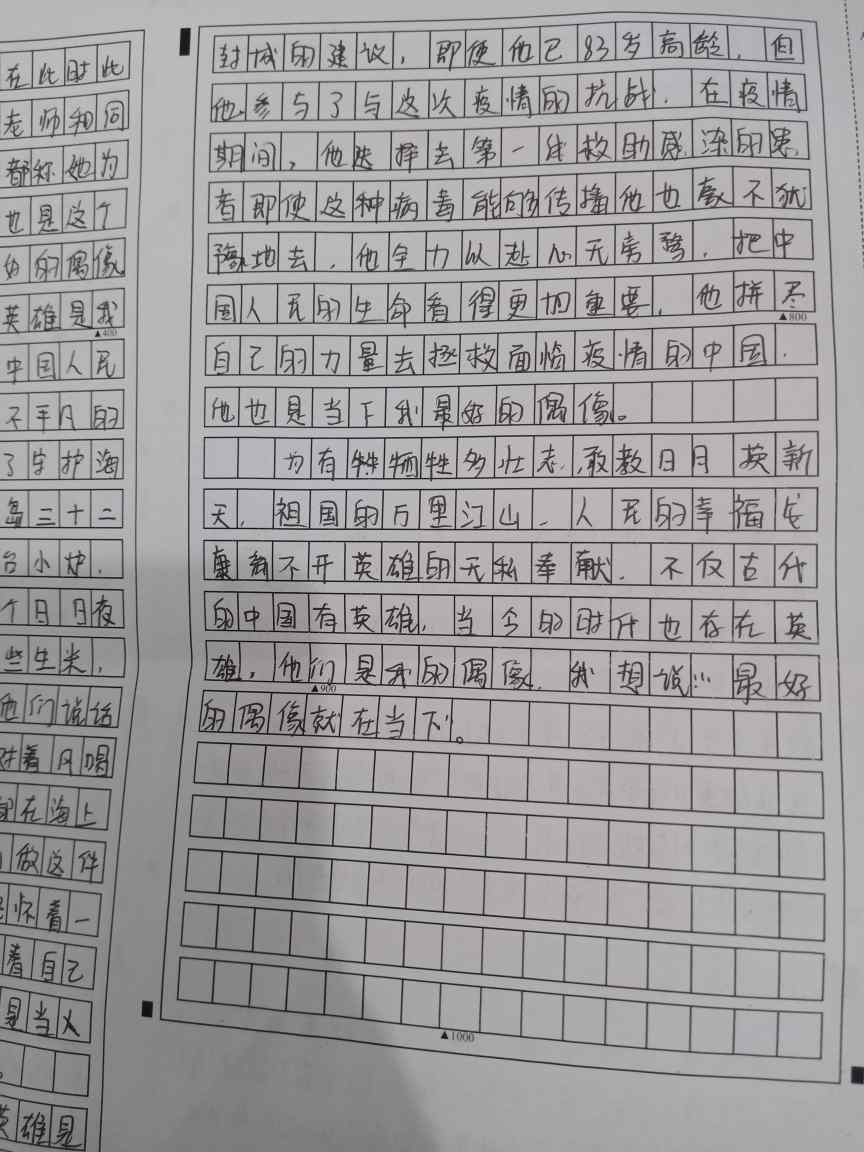 在此时此
老师和同
都称她为
也是这个
的偶像
英雄是我
▲400
中国人民
不平凡的
了守护海
岛三十二
台小炉，
个日日夜
些生米，
他们说话
对着月喝
在海上
做这件
怀着一
着自己
是当人
。
英雄是
封城的建议，即使他已83岁高龄，但
他参与了与这次疫情的抗战，在疫情
期间，他选择去第一线救助感染的患
者即使这种病毒能够传播他也毫不犹
豫地去，他全力以赴心无旁骛，把中
国人民的生命看得更加重要，他拼尽
▲800
自己的力量去拯救面临疫情的中国，
他也是当下我最好的偶像。
为有牺牲多壮志，敢教日月英新
天，祖国的万里江山，人民的幸福安
康离不开英雄的无私奉献，不仅古代
的中国有英雄，当今的时代也存在英
雄，他们是我的偶像，我想说：“最好
▲900
的偶像就在当下”。
▲1000